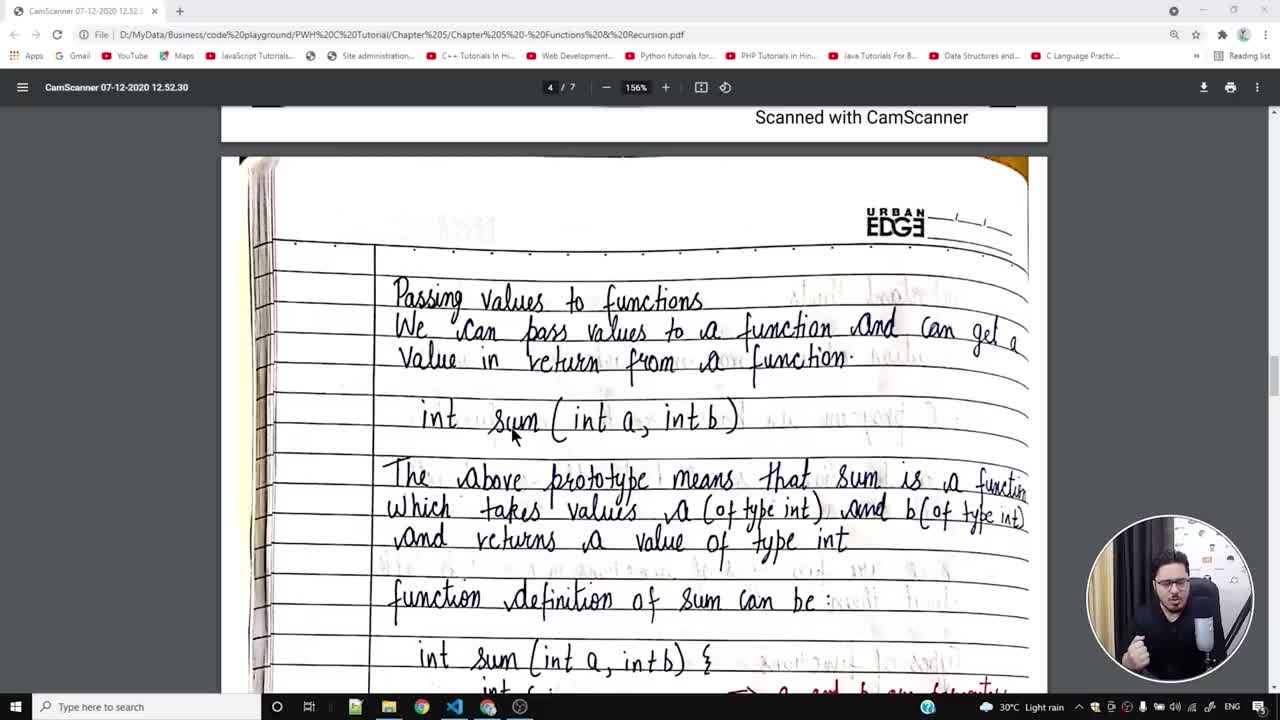 CamScanner 07-12-2020 12.52.3
File D:/MyData/Business/code%20playground/PWH%20C%20Tutorial/Chapter%205/Chapter%205%20-%20Functions%20&%20Recursion.pdf
Apps Gmail YouTube Maps JavaScript Tutorials... Site administration... C++ Tutorials In Hi... Web Development... Python tutorials for... PHP Tutorials in Hin... Java Tutorials For B... Data Structures and... C Language Practic... » Reading list
CamScanner 07-12-2020 12.52.30 4 / 7 156%
Scanned with CamScanner
URBAN
EDGE
Passing values to functions
We can pass values to a function and can get a
value in return from a function.
int sum (int a, int b)
The above prototype means that sum is a function
which takes values a (of type int) and b (of type int)
and returns a value of type int
function definition of sum can be :
int sum (int a, int b) {
Type here to search 30°C Light rain ENG